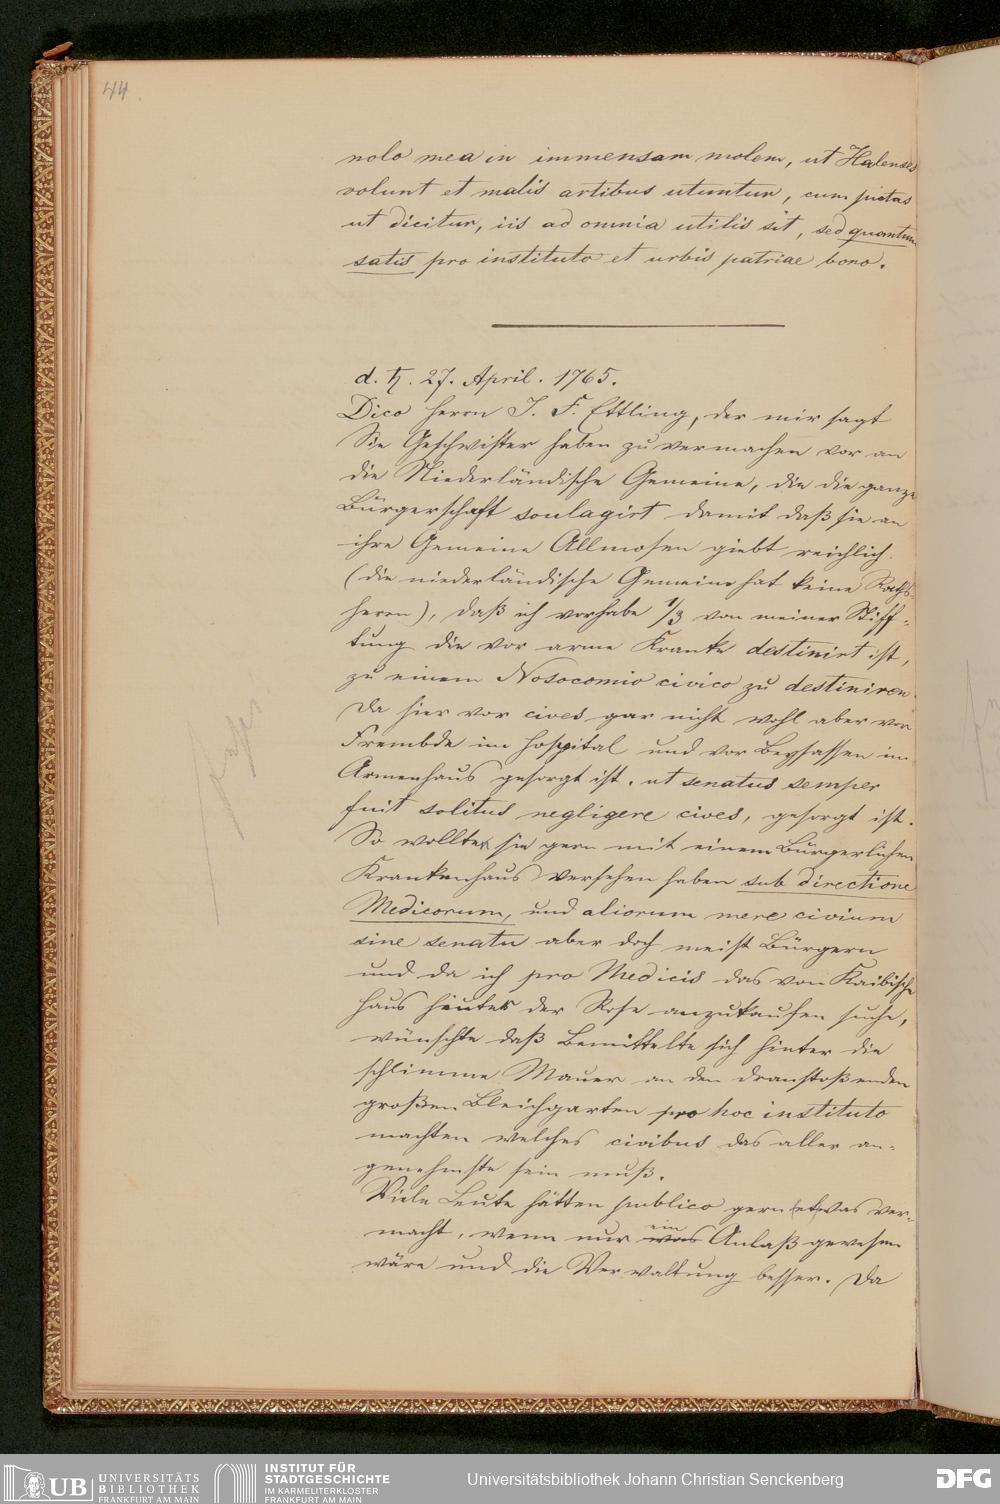 44.
nolo mea in immensam molem, ut Halenses
volunt et malis artibus utuntur, cum pietas
ut dicitur, iis ad omnia utilis sit, sed quantum
satis pro instituto et urbis patriae bono.
d. ♄. 27. April. 1765.
Dico Herrn J. F. Ettling, der mir sagt
Sie Geschwister haben zu vermachen vor an
die Niederländische Gemeine, die die ganze
Bürgerschafft soulagirt damit daß sie an
ihre Gemeine Allmosen giebt reichlich.
(die niederländische Gemeine hat keine Raths-
herrn), daß ich vorhabe 1/3 von meiner Stiff-
tung die vor arme Kranke destinirt ist,
zu einem Nosocomio civico zu destiniren.
Da hier vor cives gar nicht wohl aber vor
Frembde im Hospital und vor Beysassen im
Armenhaus gesorgt ist. ut senatus semper
fuit solitus negligere cives, gesorgt ist.
So wollte sie gern mit einem Bürgerlichen
Krankenhaus versehen haben sub directione
Medicorum, und aliorum mere civium
sine senatu aber doch meist Bürgern
und da ich pro Medicis das von Kaibische
Haus hinter der Rose anzukaufen suche,
wünschte daß Bemittelte sich hinter die
schlimme Mauer an den dranstoßenden
großen Bleichgarten pro hoc instituto
machten welches civibus das aller an-
genehmste sein muß.
Viele Leute hätten publico gern etwas ver-
macht, wenn nur was ein Anlaß gewesen
wäre und die Verwaltung besser. Da
UB UNIVERSITÄTS
BIBLIOTHEK
FRANKFURT AM MAIN
INSTITUT FÜR
STADTGESCHICHTE
IM KARMELITERKLOSTER
FRANKFURT AM MAIN
Universitätsbibliothek Johann Christian Senckenberg
DFG